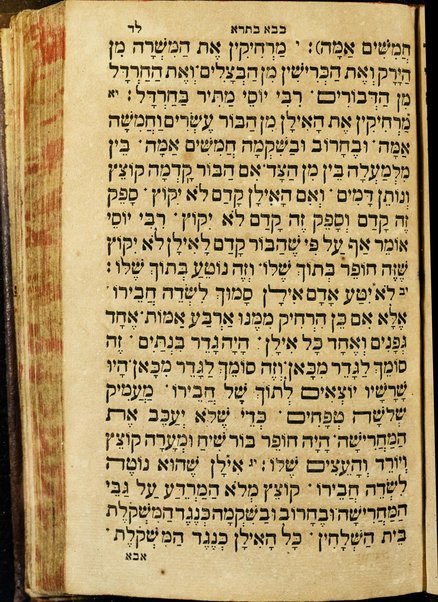 בבא בתרא לד
חֲמִשִּׁים אַמָּה): י מַרְחִיקִין אֶת הַמִּשְׁרָה מִן
הַיָּרָק וְאֶת הַכְּרִישִׁין מִן הַבְּצָלִים · וְאֶת הַחַרְדָּל
מִן הַדְּבוֹרִים · רַבִּי יוֹסֵי מַתִּיר בַּחַרְדָּל: יא
מַרְחִיקִין אֶת הָאִילָן מִן הַבּוֹר עֶשְׂרִים וַחֲמִשָּׁה
אַמָּה · וּבֶחָרוּב וּבַשִּׁקְמָה חֲמִשִּׁים אַמָּה · בֵּין
מִלְמַעְלָה בֵּין מִן הַצַּד · אִם הַבּוֹר קָדְמָה קוֹצֵץ
וְנוֹתֵן דָּמִים · וְאִם הָאִילָן קָדַם לֹא יִקּוֹץ · סָפֵק
זֶה קָדַם וְסָפֵק זֶה קָדַם לֹא יִקּוֹץ · רַבִּי יוֹסֵי
אוֹמֵר אַף עַל פִּי שֶׁהַבּוֹר קָדַם לָאִילָן לֹא יִקּוֹץ
שֶׁזֶּה חוֹפֵר בְּתוֹךְ שֶׁלּוֹ · וְזֶה נוֹטֵעַ בְּתוֹךְ שֶׁלּוֹ:
יב לֹא יִטַּע אָדָם אִילָן סָמוּךְ לִשְׂדֵה חֲבֵירוֹ ·
אֶלָּא אִם כֵּן הִרְחִיק מִמֶּנּוּ אַרְבַּע אַמּוֹת · אֶחָד
גְּפָנִים וְאֶחָד כָּל אִילָן · הָיָה גָּדֵר בֵּנְתַיִם · זֶה
סוֹמֵךְ לַגָּדֵר מִכָּאן · וְזֶה סוֹמֵךְ לַגָּדֵר מִכָּאן · הָיוּ
שָׁרָשָׁיו יוֹצְאִים לְתוֹךְ שֶׁל חֲבֵירוֹ · מַעֲמִיק
שְׁלֹשָׁה טְפָחִים · כְּדֵי שֶׁלֹּא יְעַכֵּב אֶת
הַמַּחֲרֵישָׁה · הָיָה חוֹפֵר בּוֹר שִׁיחַ וּמְעָרָה קוֹצֵץ
וְיוֹרֵד וְהָעֵצִים שֶׁלּוֹ: יג אִילָן שֶׁהוּא נוֹטֶה
לִשְׂדֵה חֲבֵירוֹ · קוֹצֵץ מְלֹא הַמַּרְדֵּעַ עַל גַּבֵּי
הַמַּחֲרֵישָׁה · וּבֶחָרוּב וּבַשִּׁקְמָה כְּנֶגֶד הַמִּשְׁקֹלֶת
בֵּית הַשְּׁלָחִין · כָּל הָאִילָן כְּנֶגֶד הַמִּשְׁקֹלֶת ·
אבא